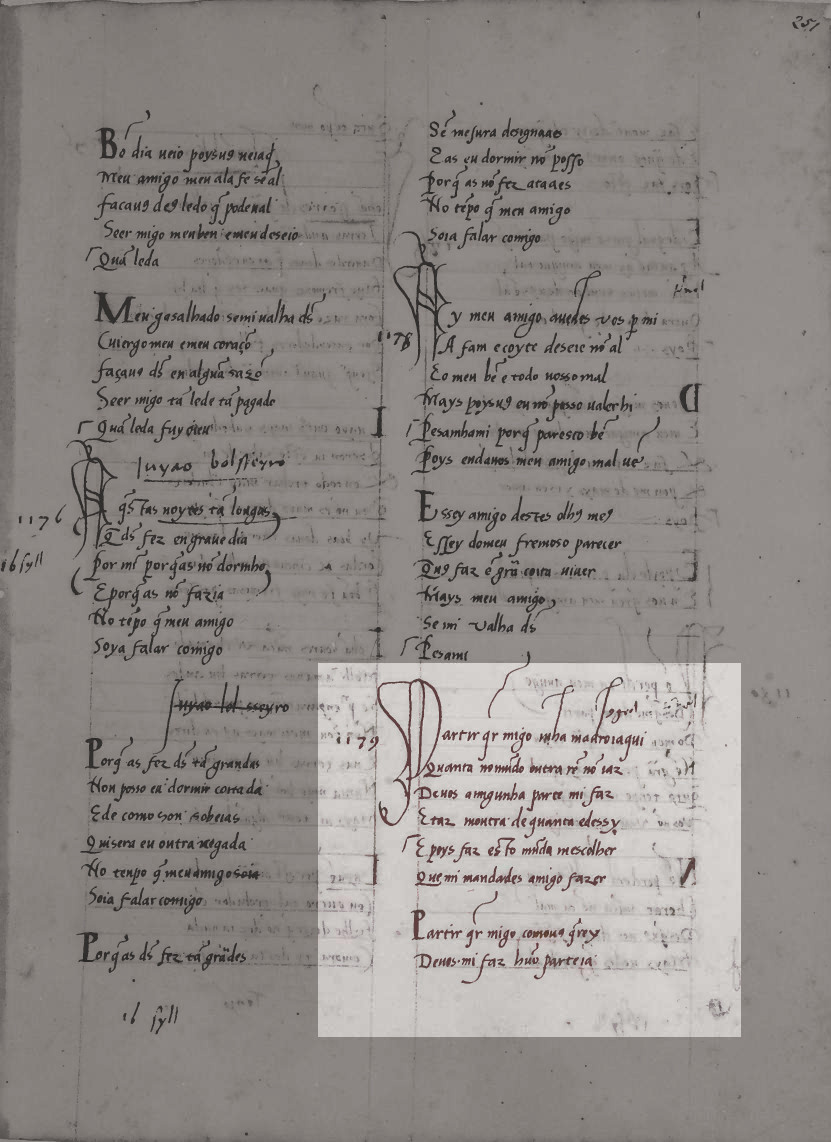 251
Bõ dia ueio poysuꝯ ueiaq̃
Meu amigo meu ala fe seal
façauꝯ deꝯ ledo q̃ podeual
Seer migo meu ben e meu deseio
Quã leda
Meu gasalhado se mi ualha dš
Cuiergo meu e meu coraçõ
façauꝯ dš en algũa sazõ
Seer migo tã lede tã pagade
Quã leda fuy oieu
Juyao bolsseyro
1176
Aq̃stas noytes tã longas
Q̃ dš fez en graue dia
16 syll
Por mĩ porq̃as nõ dormho
E porq̃as nõ fazia
No tẽpo q̃ meu amigo
Soya falar comigo
Juyao bolsseyro
Porq̃ as fez dš tã grandes
Non posso eu dormir coitada
E de como son sobeias
Quisera eu outra uegada
No tenpo q̃ meu amigo soia
Soia falar comigo
Porq̃as dš fez tã grãdes
16 syll
Sẽ mesura desiguaaes
Eas eu dormir nõ posso
Porq̃ as nõ fez ataaes
No tẽpo q̃ meu amigo
Soia falar comigo
1178
Ay meu amigo auedes vos p̱ mi
Afam e coyta e deseie nõ al
Eo meu bẽ e todo uosso mal
Mays poysuꝯ eu nõ posso ualer hi
Pesamhami porq̃ paresco bẽ
Poys endauos meu amigo mal uẽ
E ssey amigo destes olhꝯ meꝯ
E ssey domeu fremoso parecer
Quꝯ faz ẽ grã coita uiuer
Mays meu amigo
Se mi ualha dš
Pesami
1179
Partir q̃r migo mha madroiaqui
Quanta no mũdo outra rẽ nõ iaz
De uos amigunha parte mi faz
E faz moutra de quanta edessy
E poys faz esto mãda mescolher
Que mi mandades amigo fazer
Partir q̃r migo comouꝯ q̃rey
De uos mi faz hũa parteia